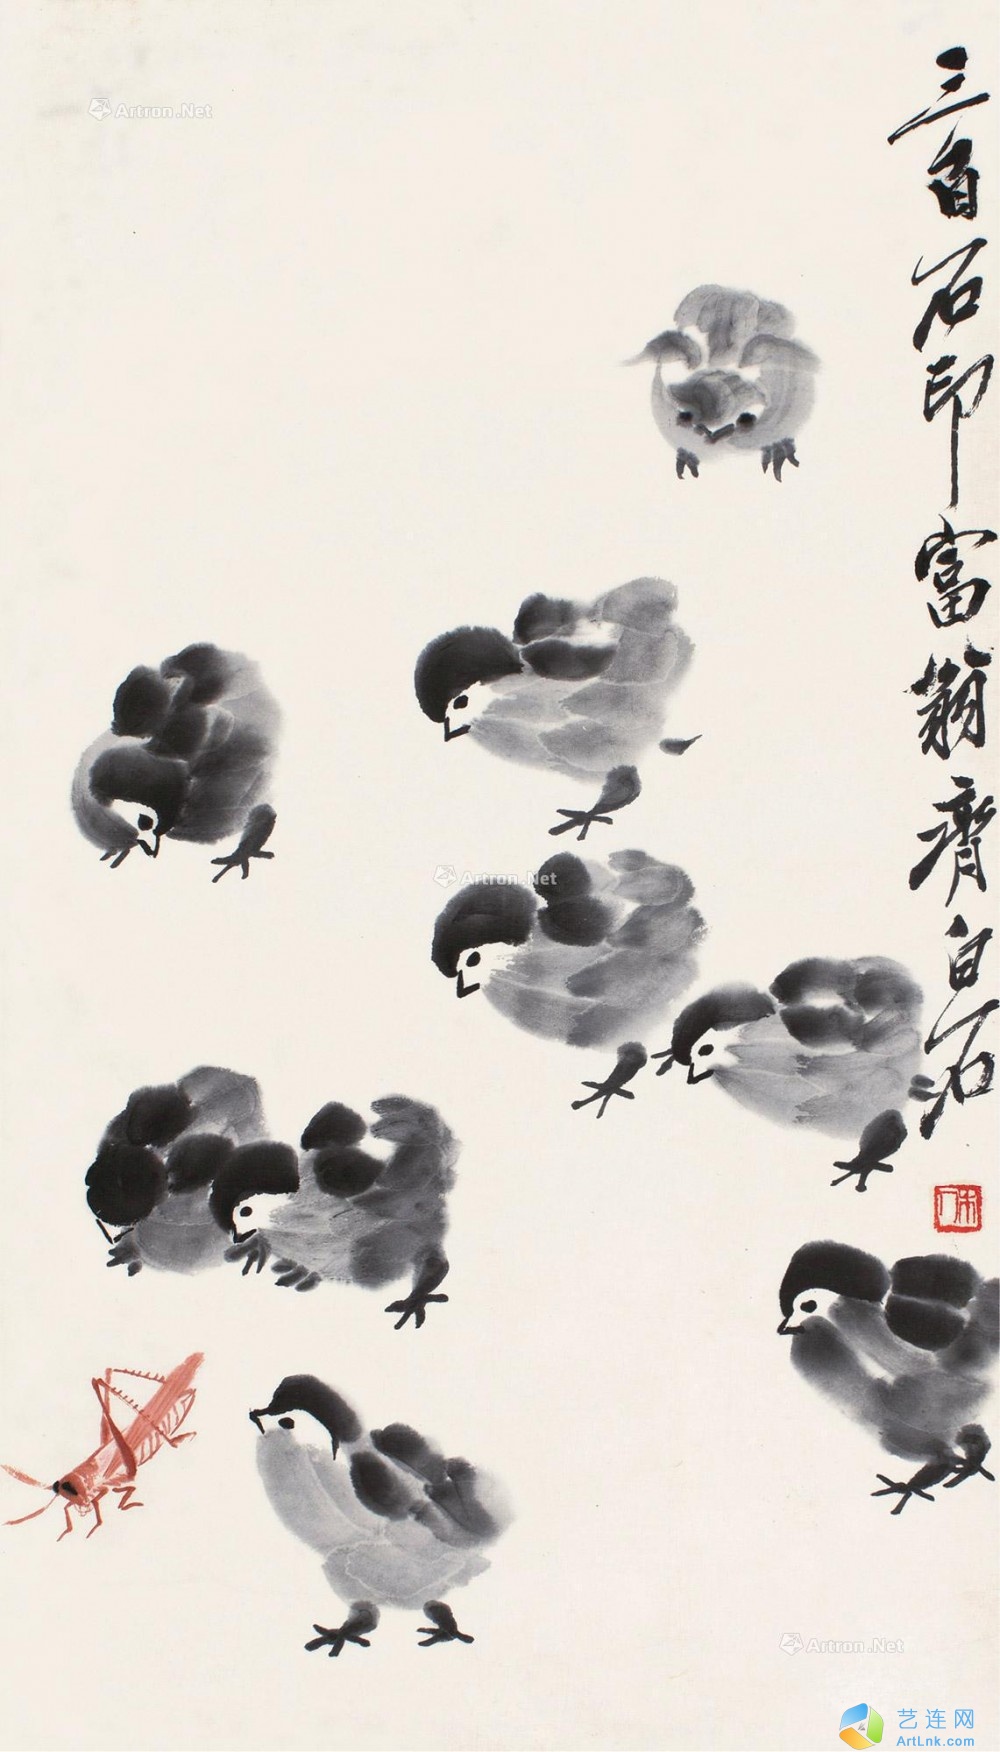 三百石印富翁齊白石
木人
Artron.Net
Artron.Net
Artron.Net
艺连网
ArtLnk.com